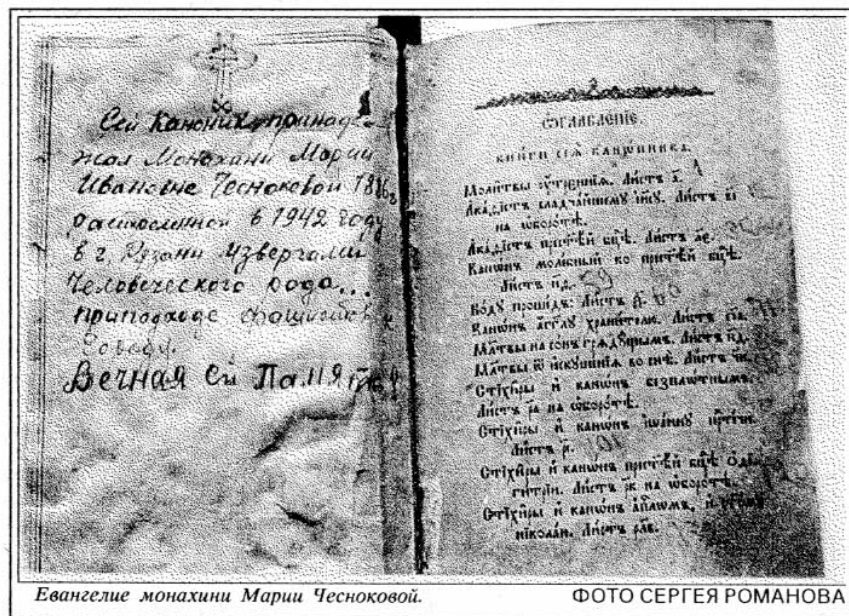 Сей Каноник принадле-
жал Монахини Марии
Ивановне Чесноковой 18 6г
расстрелянной в 1942 году
в г. Рязани извергами
Человеческого рода...
приподходе фашистов к
городу.
Вечная Ей Память
Ѡ҆главле́нїе
кни́ги сеѧ̀ канѡ́нника.
Моли̑твы ᲂу҆́трєннїѧ. Ли́стъ
А҆ка́ѳїстъ сладча́йшемꙋ і҆и҃сꙋ. Ли́стъ
на ѡ҆боро́тѣ.
А҆ка́ѳїстъ прест҃ѣ́й бц҃ѣ. Ли́стъ
Канѡ́нъ моле́бный ко прест҃ѣ́й бц҃ѣ.
Ли́стъ н҃д. 59
Во́дꙋ проше́дъ: Ли́стъ
Канѡ́нъ а҆́гг҃лꙋ храни́телю. Ли́стъ
Мл҃твы на со́нъ грѧдꙋ́щымъ. Ли́стъ
Мл҃твы ѿ ѡ҆скверне́нїѧ во снѣ̀. Ли́стъ
Стїхи̑ры и҆ канѡ́нъ безпло́тнымъ.
Ли́стъ р҃а на ѡ҆боро́тѣ.
Стїхи̑ры и҆ канѡ́нъ і҆ѡа́ннꙋ прⷣте́чи.
Ли́стъ р҃і. 101
Стїхи̑ры и҆ канѡ́нъ прест҃ѣ́й бц҃ѣ ѻ҆диги́трїи. Ли́стъ р҃к на ѡ҆боро́тѣ.
Стїхи̑ры и҆ канѡ́нъ а҆пⷭ҇лѡмъ, и҆ ст҃о́мꙋ
нїкола́ю. Ли́стъ рл҃в.
Евангелие монахини Марии Чесноковой.
ФОТО СЕРГЕЯ РОМАНОВА